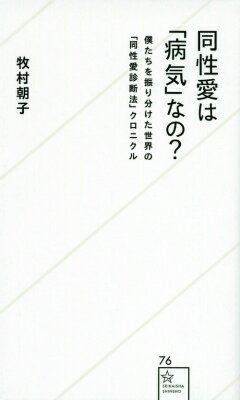 同性愛は
「病気」なの?
僕たちを振り分けた世界の
「同性愛診断法」クロニクル
牧村朝子
76
SEIKAISHA
SHINSHO